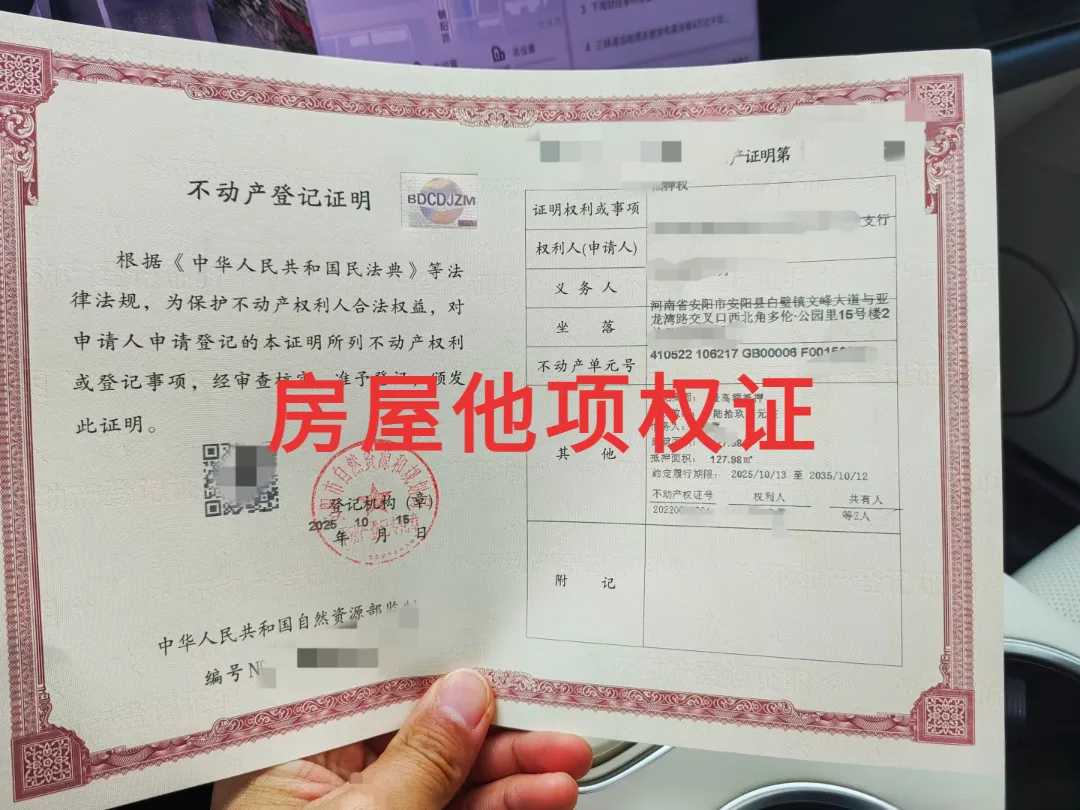 不动产登记证明
BDCDJZM
根据《中华人民共和国民法典》等法
律法规，为保护不动产权利人合法权益，对
申请人申请登记的本证明所列不动产权利
或登记事项，经审查核实，准予登记，颁发
此证明。
登记机构（章）
2025 10 15
年 月 日
中华人民共和国自然资源部监制
编号 N
房屋他项权证
产证明第
证明权利或事项
押权
权利人(申请人)
支行
义务人
坐落
河南省安阳市安阳县白璧镇文峰大道与亚
龙湾路交叉口西北角多伦·公园里15号楼2
不动产单元号
410522 106217 GB00006 F0015
其他
最高额抵押
陆拾玖
抵押面积： 127.98㎡
约定履行期限： 2025/10/13 至 2035/10/12
不动产权证号 权利人 共有人
20220 等2人
附记